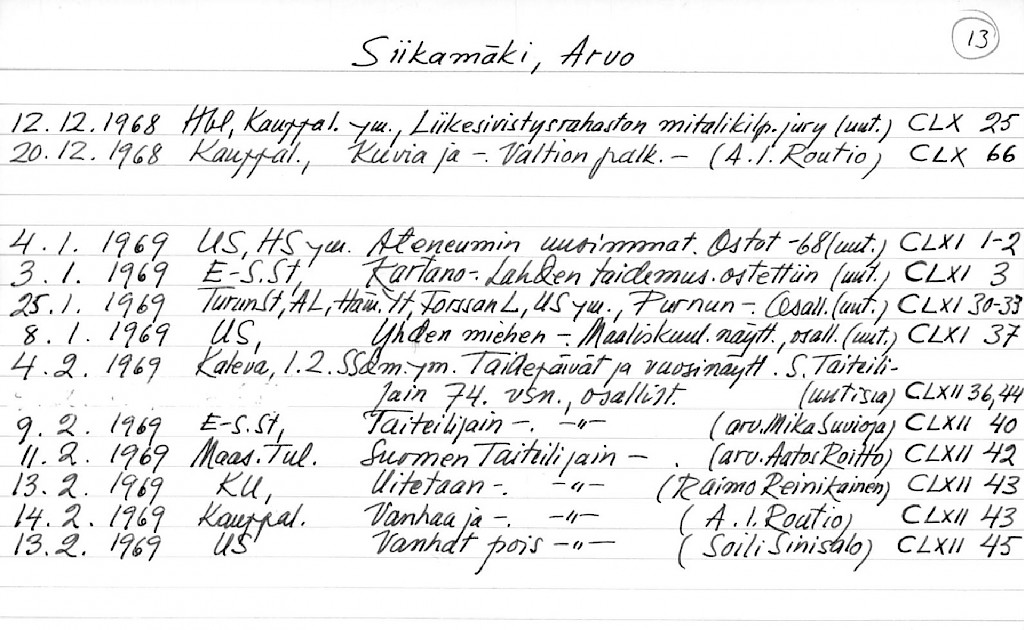 13
Siikamäki, Arvo
12.12.1968 Hbl, Kauppal. ym., Liikesivistysrahaston mitalikilp. jury (uut.) CLX 25
20.12.1968 Kauppal., Kuvia ja -. Valtion palk. - (A.I. Routio) CLX 66
4.1.1969 US, HS ym. Ateneumin uusimmat. Ostot -68 (uut.) CLXI 1-2
3.1.1969 E-S.St, Kartano-. Lahden taidemus. ostettiin (uut.) CLXI 3
25.1.1969 TurunSt, AL, Häm.Yt, ForssanL, US ym., Purnun -. Osall. (uut.) CLXI 30-33
8.1.1969 US, Yhden miehen -. Maaliskuul. näytt., osall. (uut.) CLXI 37
4.2.1969 Kaleva, 1.2. SSdm. ym. Taidepäivät ja vuosinäytt. S. Taiteili-
jain 74. vsn., osallist. (uutisia) CLXII 36,44
9.2.1969 E-S.St, Taiteilijain -. -"- (arv. Mika Suvioja) CLXII 40
11.2.1969 Maas. Tul. Suomen Taiteilijain - . (arv. Aatos Roitto) CLXII 42
13.2.1969 KU, Uitetaan -. -"- (Raimo Reinikainen) CLXII 43
14.2.1969 Kauppal. Vanhaa ja -. -"- (A.I. Routio) CLXII 43
13.2.1969 US Vanhat pois -"- (Soili Sinisalo) CLXII 45